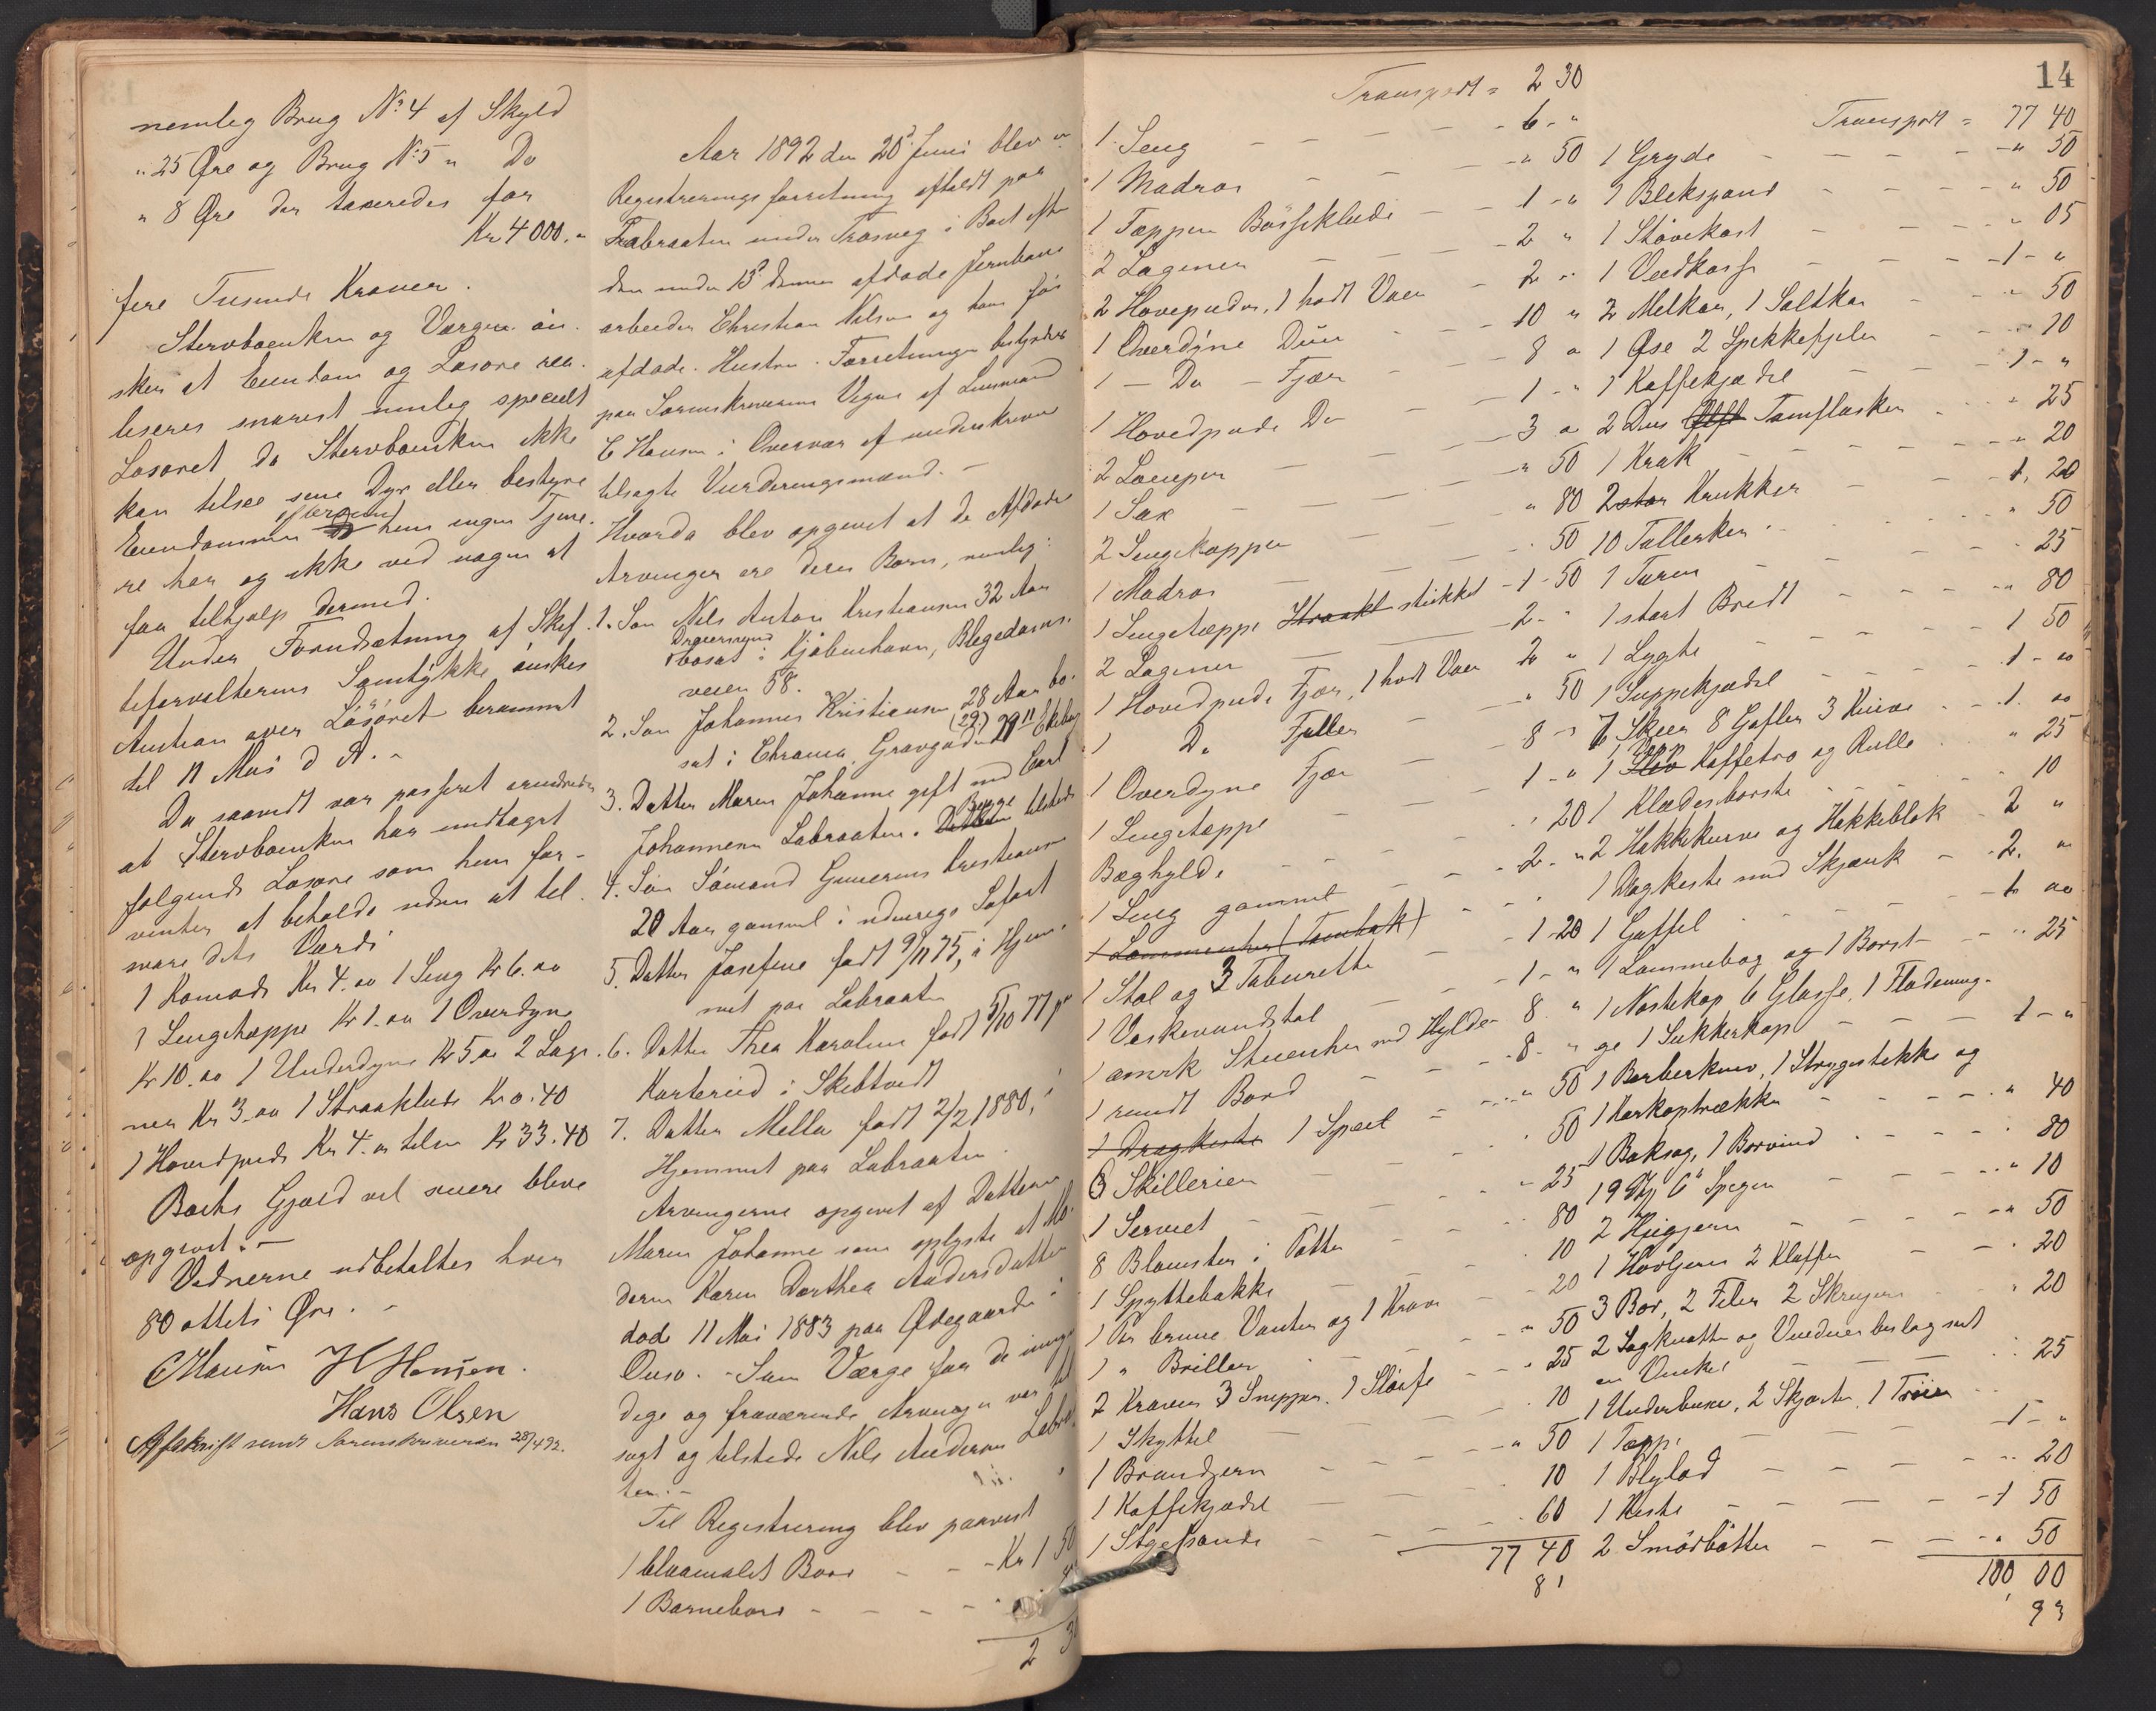 nemlig Brug No 4 af Skyld
" 25 Øre og Brug No 5 " Do
" 8 Øre der taxeredes for
Kr 4000."
fire Tusinde Kroner.
Stervboenken og Værgen øn-
sker at Eiendom og Løsøre rea-
liseres snarest nemlig specielt
Løsøret da Stervboenken ikke
kan tilsee sine Dyr eller bestyre
Eiendommen hun ingen Tjene-
re har og ikke ved nogen at
faa tilhjælp dermed.
Under Forudsætning af Skif-
teforvalterens Samtykke ønskes
Auction over Løsøret berammet
til 11 Mai d A. -
Da saavidt var passeret
at Stervboenken har undtaget
følgende Løsøre som hun for-
venter at beholde uden at til-
svare dets Værdi
1 Komode Kr 4.00 1 Seng Kr 6.00
1 Sengetæppe Kr 1.00 1 Overdyne
Kr 10.00 1 Underdyne Kr 5.00 2 Lage-
ner Kr 3.00 1 Straaklude Kr 0.40
1 Hovedpude Kr 4.00 tilsm Kr 33.40
Boets Gjæld vil senere blive
opgivet. -
Vidnerne udbetaltes hver
80 otteti Øre. -
CHansen H Hansen.
Hans Olsen
Afskrift sendt Sorenskriveren 28/4 92.
Aar 1892 den 20d Juni blev en
Registreringsforretning afholdt paa
Labraaten under Træsveg i Boet efter
den under 13d dennes afdøde Jernbane
arbeider Christian Nilsen og hans før
afdøde Hustru. Forretningen bestyredes
paa Sorenskriverens Vegne af Lensmand
C Hansen i Overvær af underskrevne
tilsagte Vurderingsmænd. -
Hvorda blev opgivet at de Afdødes
Arvinger ere deres Børn, nemlig:
1. Søn Nils Anton Kristiansen 32 Aar
bosat i Kjøbenhavn, Blegedams-
veien 58.
2. Søn Johannes Kristiansen 28 Aar bo-
sat i Chrania, Grøvgaden
3. Datter Maren Johanne gift med Carl
Johannesen Labraaten. Begge tilstede
4. Søn Sømand Gunerius Kristiansen
20 Aar gammel i udenrigs Søfart
5. Datter Josefine født 9/11 75, i Hjem-
met paa Labraaten
6. Datter Thea Karoline født 5/10 77 paa
i Skibtvedt
7. Datter Mella født 2/2 1880, i
Hjemmet paa Labraaten.
Arvingerne opgivet af Datteren
Maren Johanne som oplyste at Mo-
deren Karen Dorthea Andersdatter
døde 11 Mai 1883 paa Ødegaarden i
Onsø. - Som Værge for de umyn-
dige og fraværende Arvinger var til-
sagt og tilstede Nils Andersen Labraa-
ten. -
Til Registrering blev paavist
1 blaamalet Bord - - Kr 1 50
1 Barnebord - - -
2 3
Transport = 2 30
1 Seng - - 6 - "
1 Madras - - " 50
1 Tæppe Bøsseklude - 1 - "
2 Lagener - 2 "
2 Hovepuder, 1 hvidt Vaer - 2 "
1 Overdyne Duun - 10 "
1 - Do - Fjær - 8 "
1 Hovedpude Do - 1 - "
2 Lamper - 3 "
1 Sax - " 50
2 Sengekapper - " 80
1 Madras - 50
1 Sengetæppe Straakl stukket - 1 - 50
2 Lagener - 2 - "
1 Hovedpude Fjær, 1 hvidt Vaer 2 "
1 Do Filler " 50
1 Overdyne Fjær - 8 "
1 Sengetæppe - 1 - "
Bæghylde - 20
1 Seng gammel - 2 - "
1 Stol og 3 Taburetter - 1 - 20
1 Vaskevandstol - 1 - "
1 amrk Stueuhr med Hylde - 8 "
1 rundt Bord - 8 - "
1 Dragkiste 1 Speil - " 50
6 Skillerier - 50
1 Serviet - " 25
8 Blomster i Potter - 80
1 Spyttebakke - 10
1 Par brune Vanter og 1 Krave - 20
1 " Briller - " 50
2 Kraver 3 Snipper. 1 Sløife - 25
1 Skyttel - 10
1 Brandjern - " 50
1 Kaffekjædel - 10
1 Stgepande - 60
77 40
81
14
Transport = 77 40
1 Gryde - " 50
1 Blekspand - " 50
1 Støvekost - " 05
1 Vedkasse - 1 - "
2 Melkar, 1 Saltkar - " 50
1 Øse 2 Spekkefjeler - " 10
1 Kaffekjædel - 1 - "
2 Dus Tomflasker - " 25
1 Krak - " 20
2 stør Krukker - 1, 20
10 Tallerker - " 50
1 Turin - 25
1 stort Bredt - " 80
1 Lygte - 1 50
1 Suppekjædel - 1 - 00
7 Skeer 8 Gafler 3 Knive - 1. 00
1 Kaffebro og Rulle " 25
1 Klædesbørste - 10
2 Hakkekurve og Hakkeblok 2 "
1 Dragkiste med Skjænk - 2. "
1 Gaffel - 1 00
1 Lommebog og 1 Børst - " 25
1 Nostekop 6 Glasse, 1 Flødemug-
ge 1 Sukkerkop - 1 - "
1 Barberkniv, 1 Strygestikke og
1 Korkoptrækker - " 40
1 Baksag, 1 Borvind - " 80
19 Stk 6" Spiger - " 10
2 Hugjern - " 50
1 Hovljern 2 Kloffer - " 20
3 Bor, 2 Filer 2 Skrujern - " 20
2 Sagkratter og Vinduer beslag samt
en Vinkel - " 25
1 Underbuxe, 2 Skjorter, 1 Trøie
1 Tæppe - 1 - "
1 Blylod - " 20
1 Kiste - 1 50
2 Smørbøtter - " 50
100, 00
93